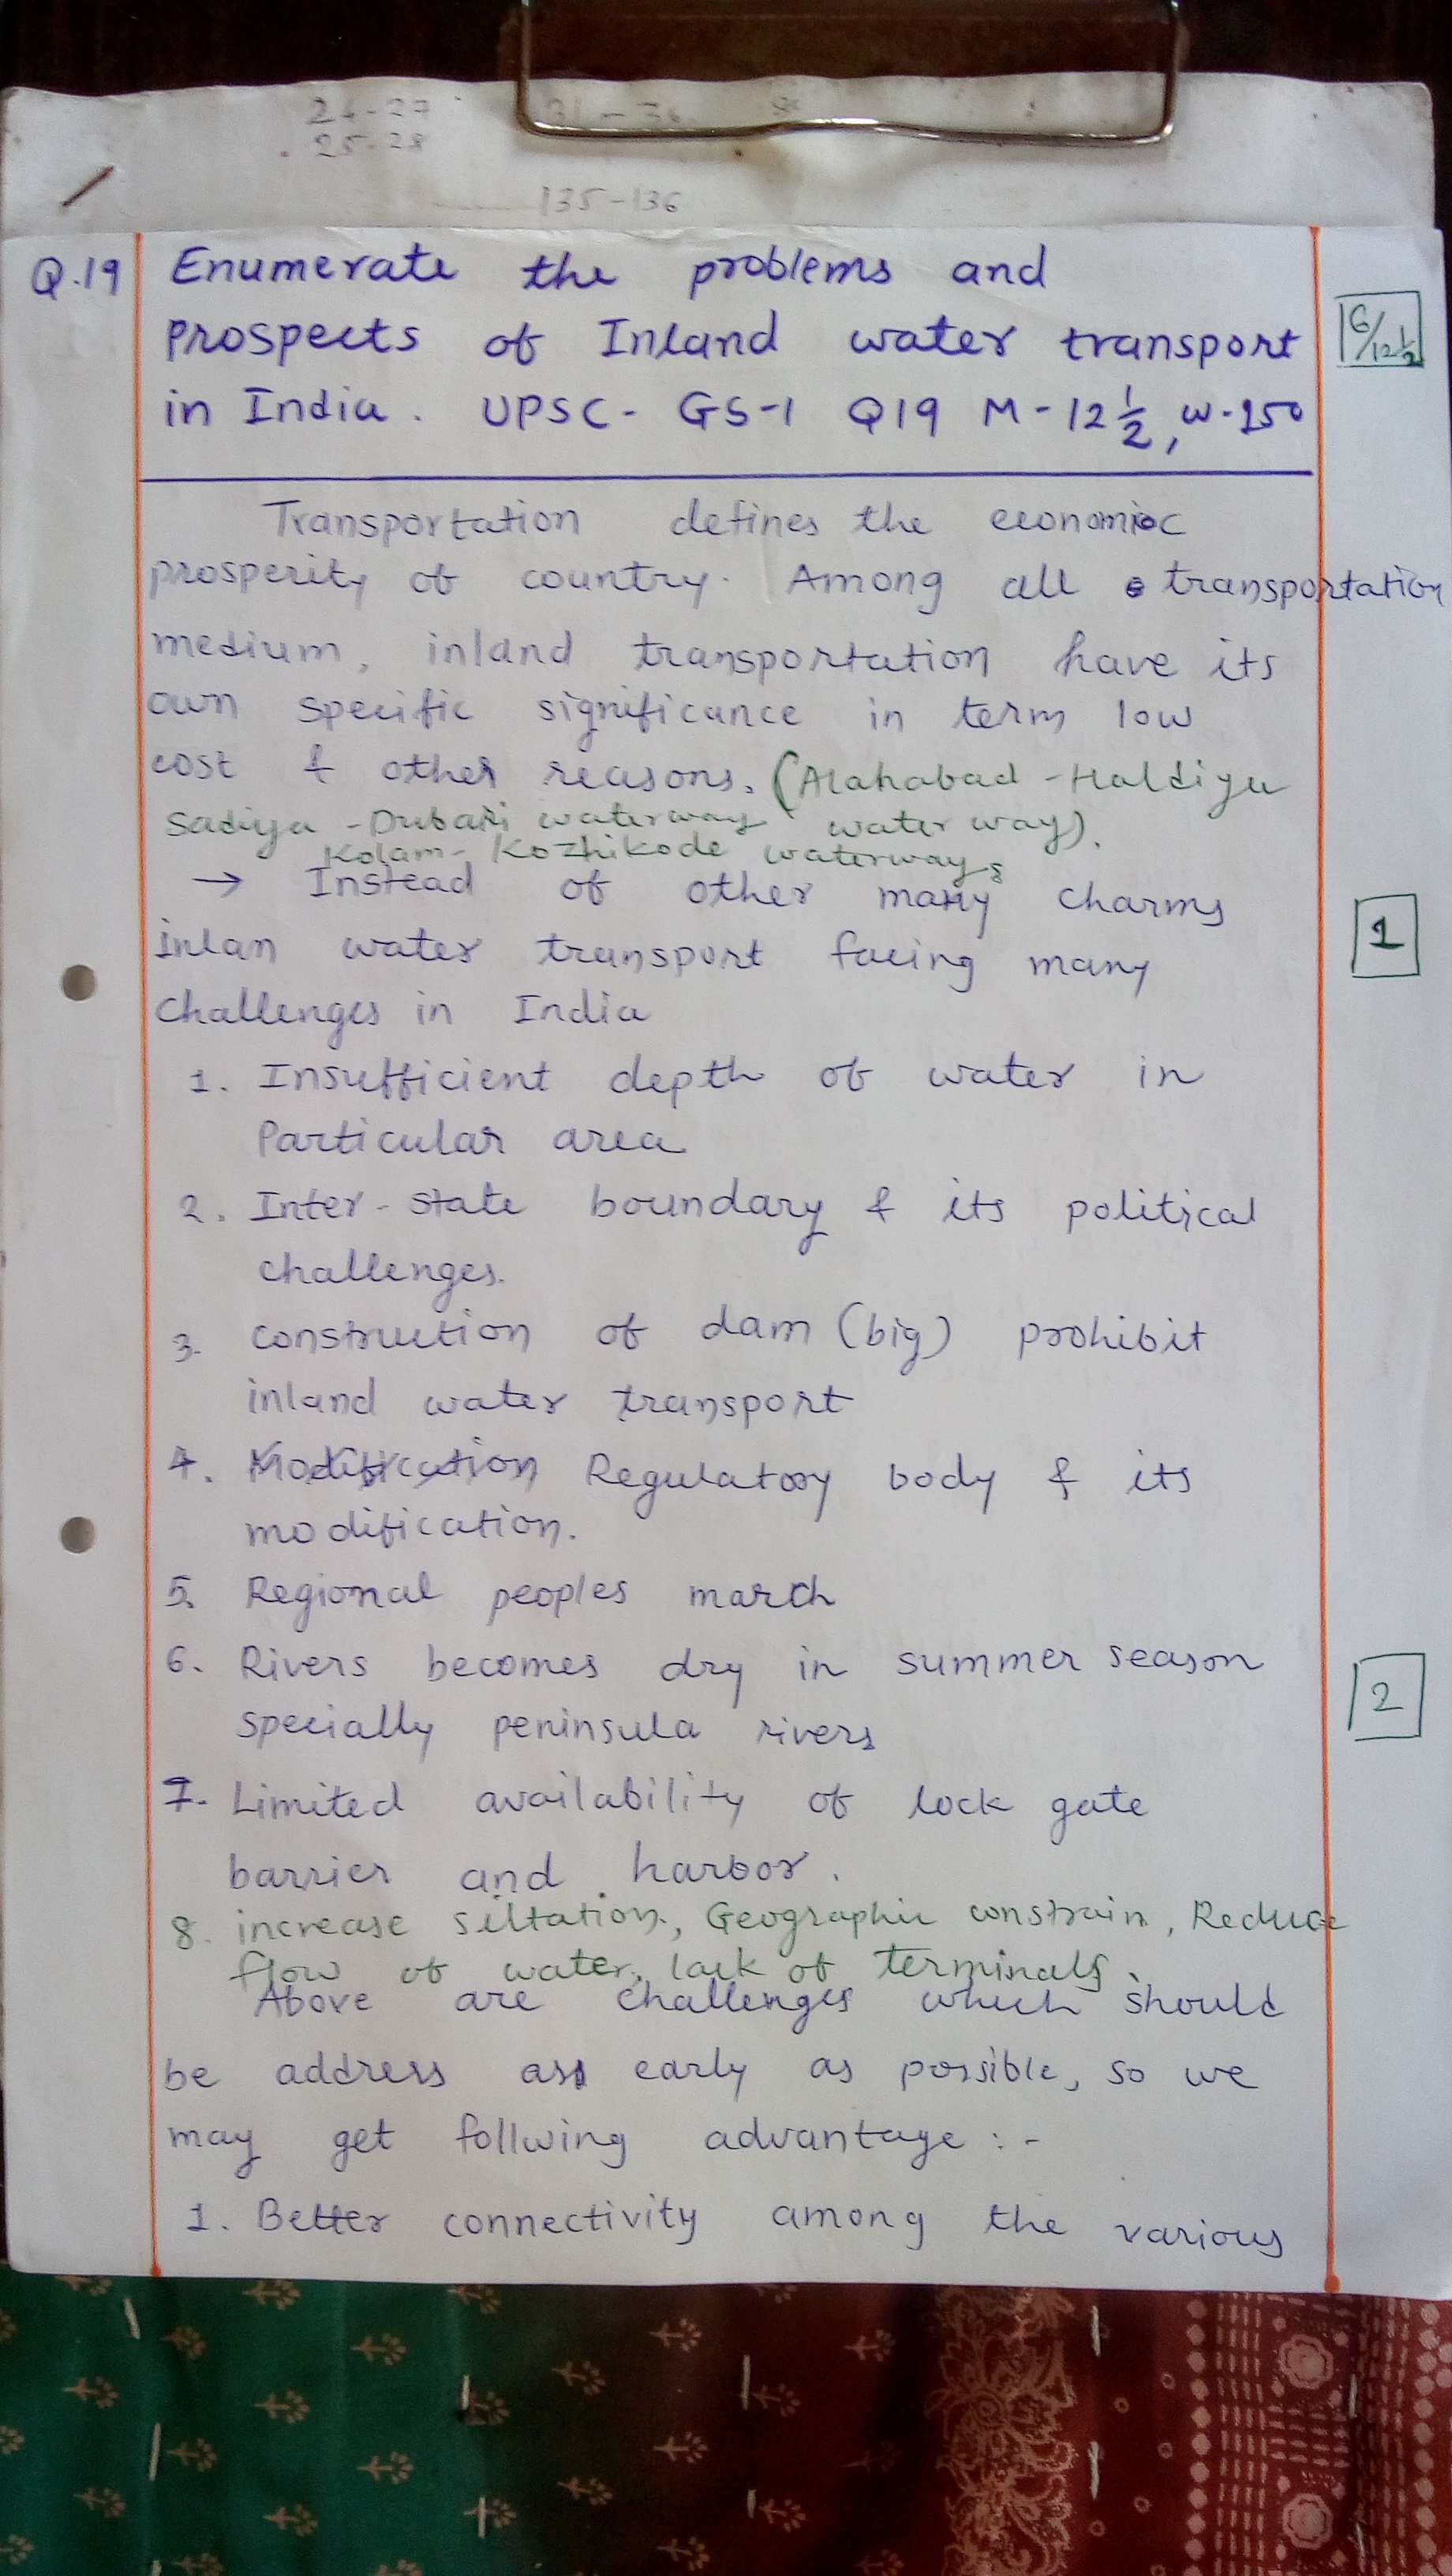 24-27
25-28
135-136
Q.19 Enumerate the problems and
prospects of Inland water transport
in India. UPSC- GS-1 Q19 M-12 1/2, W-250
6/12 1/2
Transportation defines the economic
prosperity of country. Among all transportation
medium, inland transportation have its
own specific significance in term low
cost & other reasons. (Alahabad - Haldiya
Sadiya - Dubari waterway water way).
Kolam- Kozhikode waterways
→ Instead of other many charms
inlan water transport facing many
challenges in India
1
1. Insufficient depth of water in
Particular area
2. Inter-state boundary & its political
challenges.
3. construction of dam (big) prohibit
inland water transport
4. Modification Regulatory body & its
modification.
5. Regional peoples march
6. Rivers becomes dry in summer season
specially peninsula rivers
2
7. Limited availability of lock gate
barrier and harbor.
8. increase siltation, Geographic constrain, Reduce
flow of water, lack of terminals.
Above are challenges which should
be address as early as possible, so we
may get follwing advantage :-
1. Better connectivity among the various